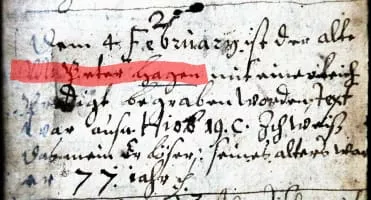 2
Dem 4. February ist der alte
Peter Hagen mit einer leich
Predigt begraben worden Text
war aus Hiob 19. C. Ich weiß
das mein Erlöser: seines alters war
er 77. iahr